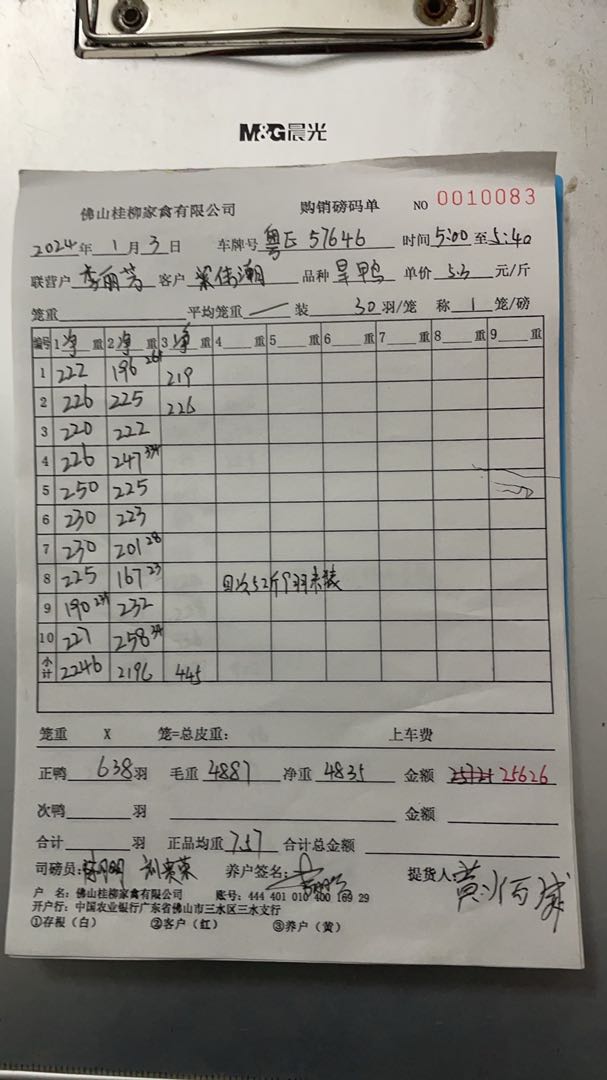 M&G晨光
佛山桂柳家禽有限公司 购销磅码单 NO 0010083
2024年 1月 3日 车牌号 粤E 57646 时间 5:00 至 5:40
联营户 李丽芳 客户 梁伟潮 品种 旱鸭 单价 5.3 元/斤
笼重 平均笼重 装 30 羽/笼 称 1 笼/磅
编号 1 净 重 2 净 重 3 净 重 4 重 5 重 6 重 7 重 8 重 9 重
1 222 196 219
2 226 225 226
3 220 222
4 226 247
5 250 225
6 230 223
7 230 201 28
8 225 167 23 回次52斤9羽未装
9 190 232
10 227 258
小计 2246 2196 445
笼重 X 笼=总皮重: 上车费
正鸭 638 羽 毛重 4887 净重 4835 金额 25626
次鸭 羽 金额
合计 羽 正品均重 7.57 合计总金额
司磅员: 养户签名: 提货人
户 名: 佛山桂柳家禽有限公司 账号: 444 401 010 400 169 29
开户行: 中国农业银行广东省佛山市三水区三水支行
①存根(白) ②客户(红) ③养户(黄)